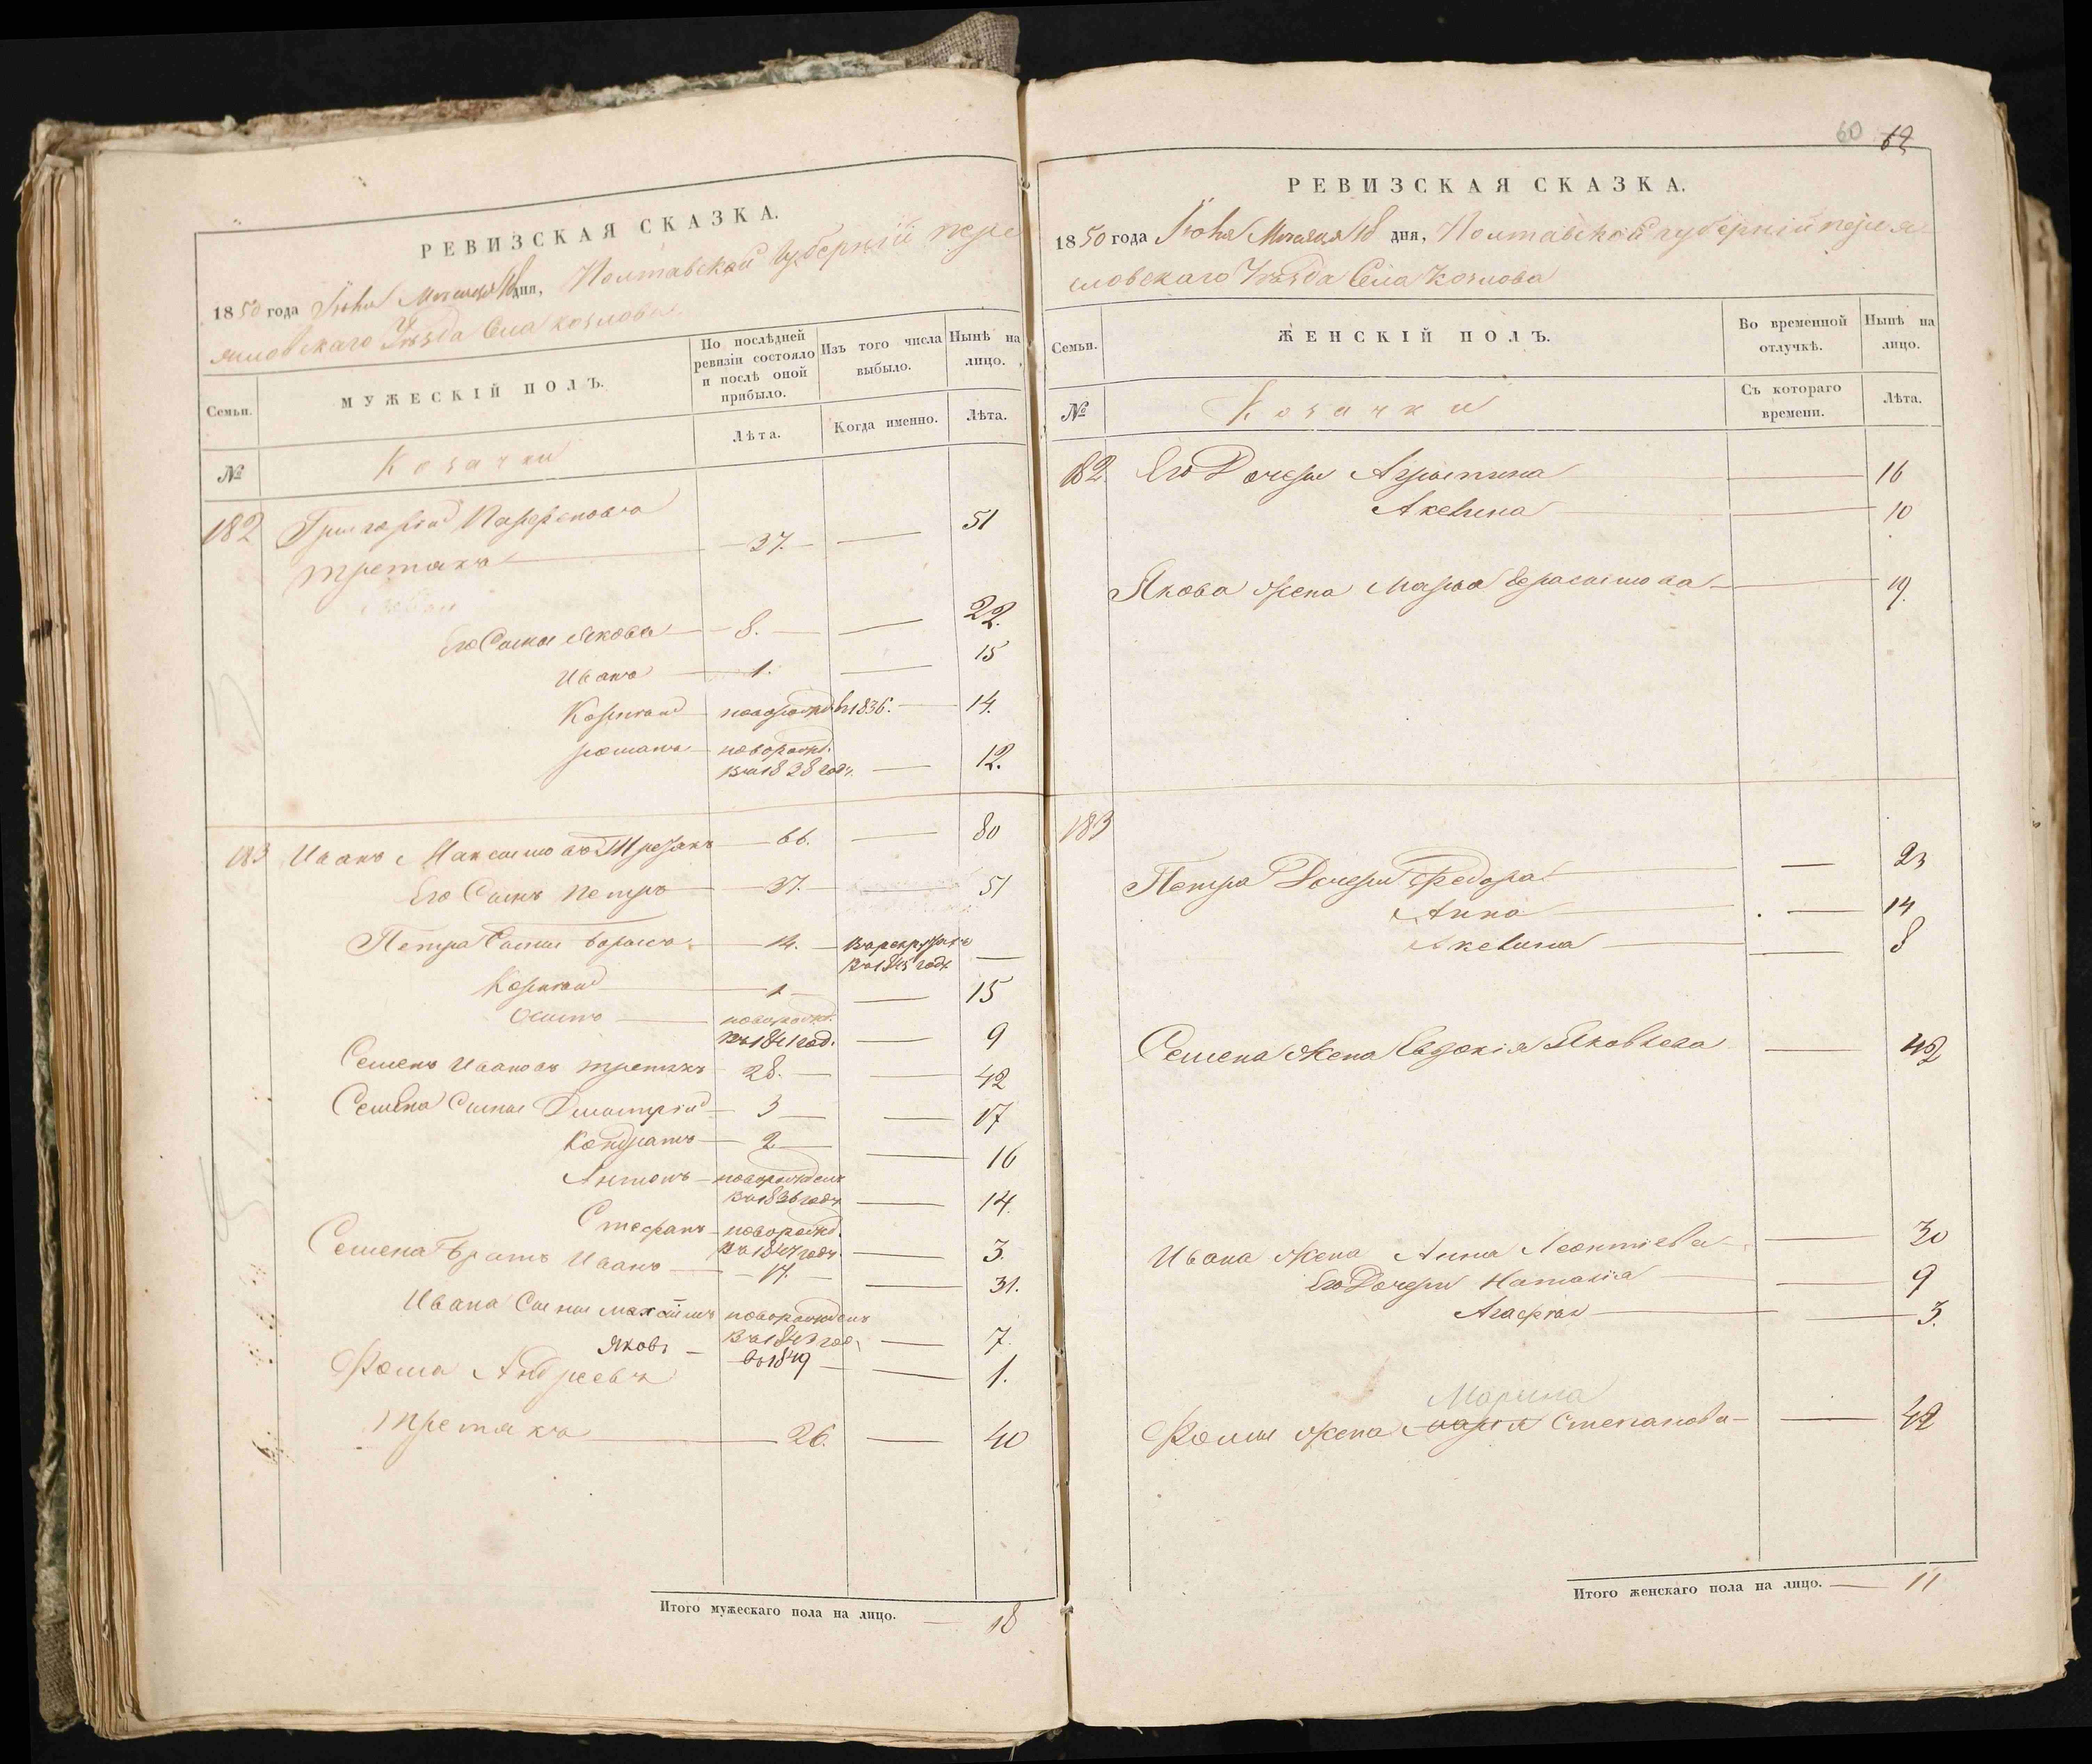 РЕВИЗСКАЯ СКАЗКА.
1850 года Июня Месяца 18 дня, Полтавской Губерніи пере
яславскаго Уѣзда Села Козлова
Семьи.
МУЖЕСКІЙ ПОЛЪ.
По послѣдней
ревизіи состояло
и послѣ оной
прибыло.
Изъ того числа
выбыло.
Нынѣ на
лицо.
Лѣта.
Когда именно.
Лѣта.
№
Козачки
182 Григорій Парфеновъ 51
третякъ 37.
Его Сыны Яковъ 8. 22.
Иванъ 1. 15
Корнѣй новорожд. въ 1836. 14.
романъ новорожд.
въ 1838 годѣ. 12.
183 Иванъ Максимовъ Третякъ 66. 80
Его Сынъ Петръ 37. 51
Петра Сыны 14. в рекруты
въ 1845 годѣ
Корнѣй 1 15
Осипъ новорожд.
въ 1841 год. 9
Семенъ Ивановъ третякъ 28. 42
Семена Сыны Дмитрій 3 17
Кондратъ 2 16
Антонъ новорожденъ
въ 1836 годѣ 14.
Стефанъ новорожд.
въ 1847 годѣ 3.
Семена Братъ Иванъ 17. 31.
Ивана Сыны максимъ новорожденъ
въ 1843 год. 7.
Яковъ въ 1849 1.
Фома Андреевъ
третякъ 26. 40
Итого мужескаго пола на лицо. 18
60 62
РЕВИЗСКАЯ СКАЗКА.
1850 года Июня Месяца 18 дня, Полтавской губерніи перея
словскаго Уѣзда Села Козлова
Семьи.
ЖЕНСКІЙ ПОЛЪ.
Во временной
отлучкѣ.
Нынѣ на
лицо.
№
Козачки
Съ котораго
времени.
Лѣта.
182. Его Дочери 16
Акевина 10
Якова жена Марья Герасимова 19.
183
Петра Дочери Федора 23
Анна 14
Акевина 8
Семена жена Евдокія Яковлева 42
Ивана жена Анна Леонтіева 30
Его Дочери Наталія 9
Агафія 3.
Марина
Фомы жена марія Степанова 42
Итого женскаго пола на лицо. 11